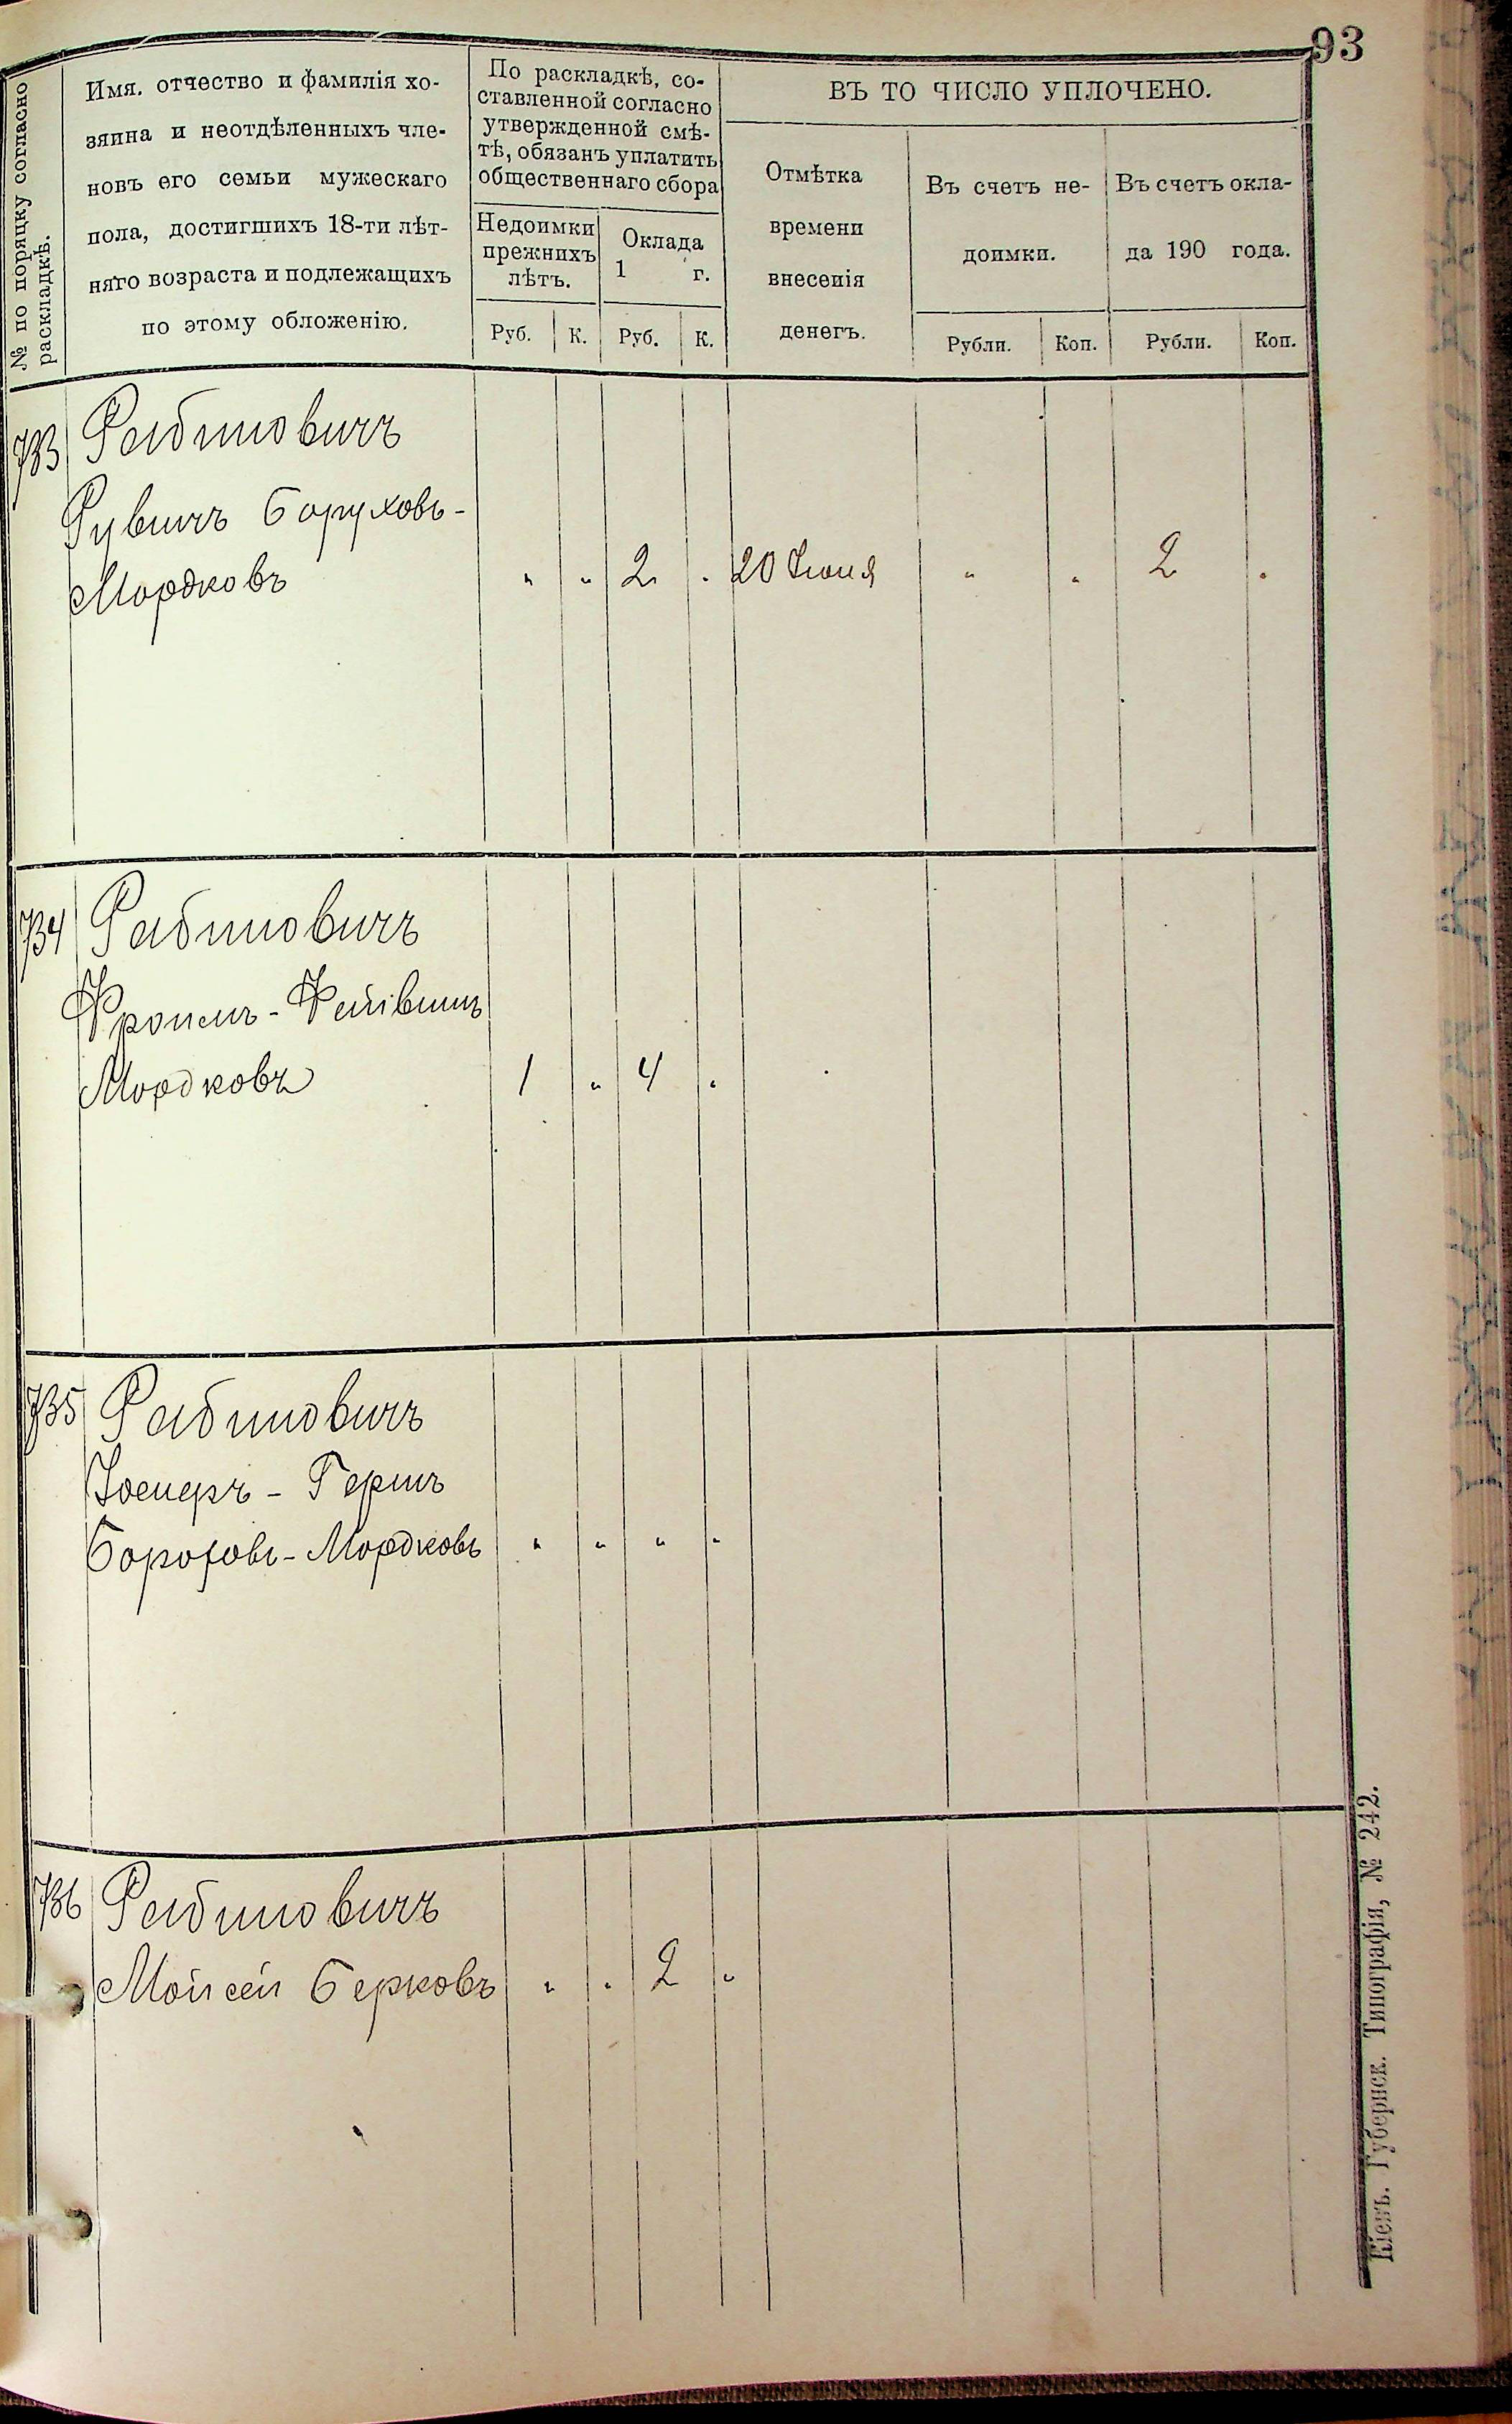 93
№ по порядку согласно
раскладкѣ.
Имя. отчество и фамилія хо-
зяина и неотдѣленныхъ чле-
новъ его семьи мужескаго
пола, достигшихъ 18-ти лѣт-
няго возраста и подлежащихъ
по этому обложенію.
По раскладкѣ, со-
ставленной согласно
утвержденной смѣ-
тѣ, обязанъ уплатить
общественнаго сбора
Недоимки
прежнихъ
лѣтъ.
Оклада
1 г.
Руб. К. Руб. К.
ВЪ ТО ЧИСЛО УПЛОЧЕНО.
Отмѣтка
времени
внесенія
денегъ.
Въ счетъ не-
доимки.
Въ счетъ окла-
да 190 года.
Рубли. Коп. Рубли. Коп.
733 Рабиновичъ
Рувинъ Боруховъ-
Мордковъ " " 2 " 20 Іюня " " 2 "
734 Рабиновичъ
Фроимъ-Фейвишъ
Мордковъ 1 " 4 "
735 Рабиновичъ
Гершъ
Мордковъ " " " "
736 Рабиновичъ
Мойсей Берковъ " " 2 "
Кіевъ. Губернск. Типографія, № 242.